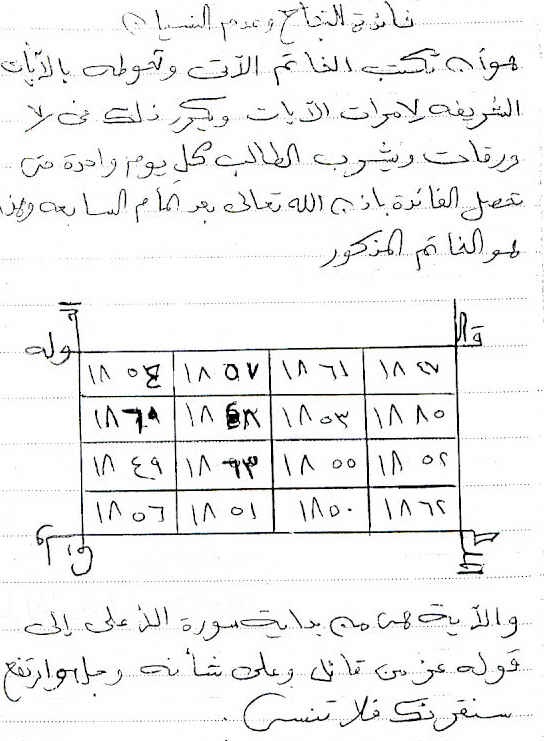 فائدة النجاح وعدم النسيان
هو أن تكتب الخاتم الآتى وتحوطه بالآيات
الشريفه ٧ مرات الآيات ويكرر ذلك فى ٧
ورقات ويشرب الطالب كل يوم واحدة حتى
تحصل الفائدة باذن الله تعالى بعد تمام السابعه وهذا
هو الخاتم المذكور
قوله
١٨٥٤ ١٨٥٧ ١٨٦١ ١٨٤٧
١٨٥٣ ١٨٨٥
١٨٤٩ ١٨٦٣ ١٨٥٥ ١٨٥٢
١٨٥٦ ١٨٥١ ١٨٥٠ ١٨٦٢
الحق
والآية هى من بداية سورة الأعلى إلى
قوله عز من قائل وعلى شأنه وجل وارتفع
سنقرئك فلا تنسى.